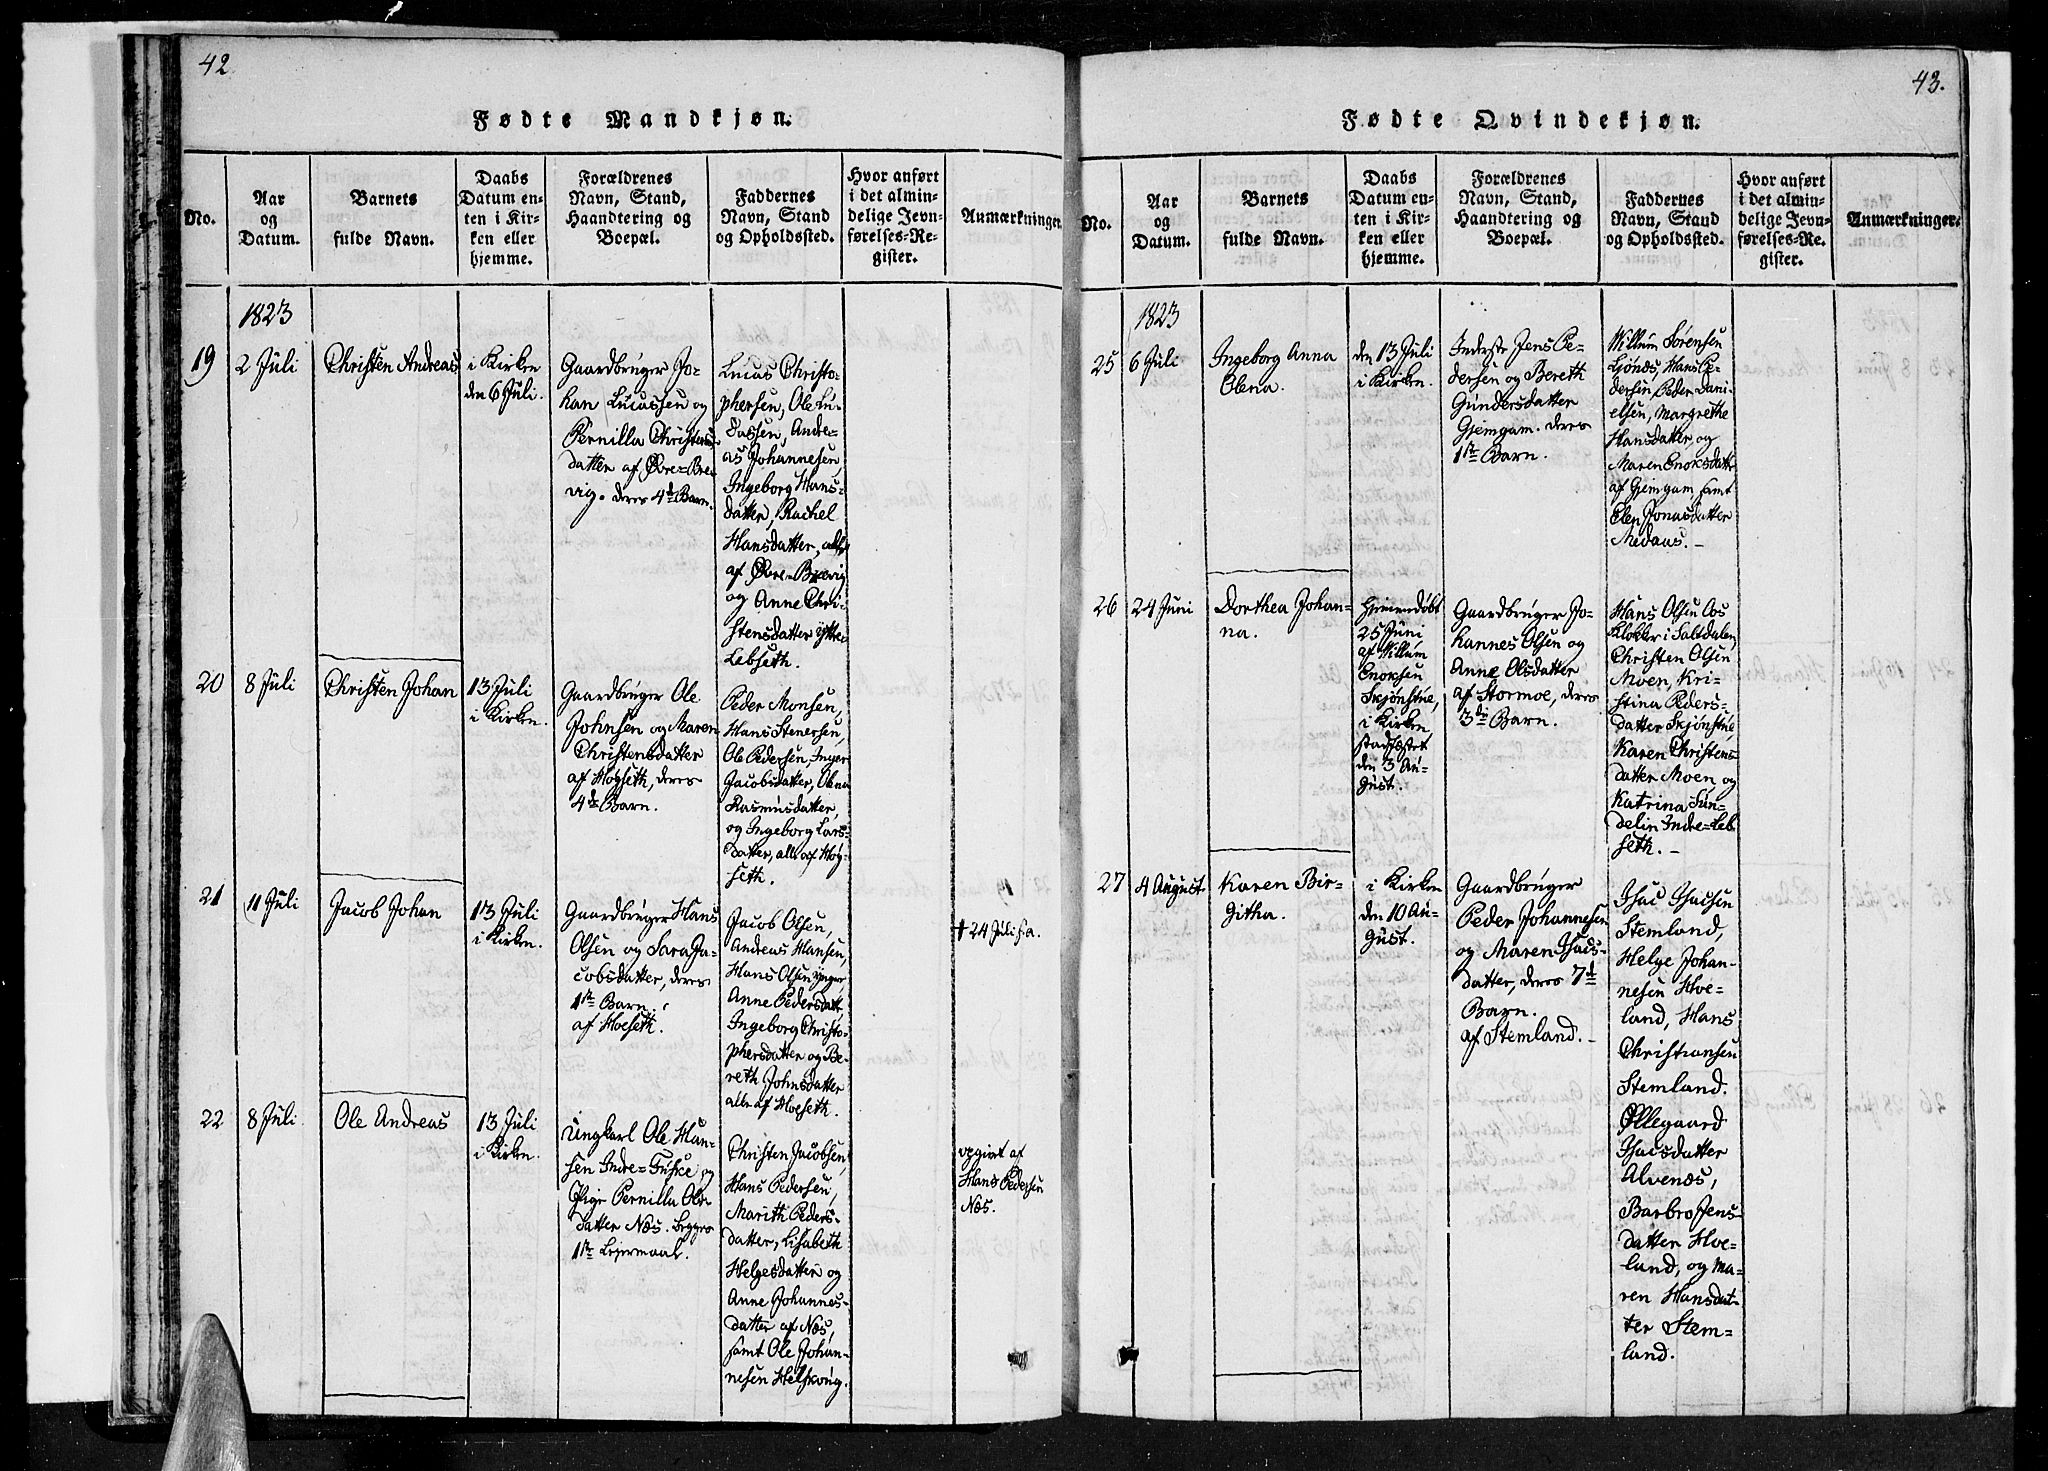 42
Fødte Mandkjøn.
No.
Aar
og
Datum.
Barnets
fulde Navn.
Daabs
Datum en-
ten i Kir-
ken eller
hjemme.
Forældrenes
Navn, Stand,
Haandtering og
Boepæl.
Faddernes
Navn, Stand
og Opholdssted.
Hvor anført
i det almin-
delige Jevn-
førelses-Re-
gister.
Anmærkninger.
1823
19
2 Juli
Christen Andreas
i Kirken
den 6 Juli.
Gaardbruger Jo-
han Lucassen og
Pernilla Christens
datter af Øvre-Bre
vig. deres 4de Barn.
Lucas Christo-
phersen, Ole Lu-
cassen, Andre-
as Johannesen,
Ingeborg Hans-
datter, Rachel
Hansdatter, alle
af Øvre-Brevig
og Anne Chri-
stensdatter ytre
Lebseth.
20
8 Juli
Christen Johan
13 Juli
i Kirken.
Gaardbruger Ole
Johnsen og Maren
Christensdatter
af Høyseth, deres
4de Barn.
Peder Monsen,
Hans Stenersen,
Ole Pedersen, Inger
Jacobsdatter, Olena
Rasmusdatter,
og Ingeborg Lars-
datter, alle af Høy-
seth.
21
11 Juli
Jacob Johan
13 Juli
i Kirken.
Gaardbruger Hans
Olsen og Sara Ja-
cobsdatter, deres
1ste Barn.
af Hoeseth.
Jacob Olsen,
Andreas Hansen,
Hans Olsen ynger,
Anne Pedersdatt,
Ingeborg Christo-
phersdatter og Be-
reth Johnsdatter
alle af Hoeseth.
† 24 Juli s. a.
22
8 Juli
Ole Andreas
13 Juli
i Kirken.
Ungkarl Ole Han-
sen Indre-Fuske, og
Pige Pernilla Ole
datter Næs. begges
1ste Leiermaal.
Christen Jacobsen,
Hans Pedersen,
Marith Peders-
datter, Lisabeth
Helgesdatter og
Anne Johannes-
datter af Næs,
samt Ole Johan-
nesen Helskoug.
opgivet af
Hans Pedersen
Næs.
43.
Fødte Qvindekjøn.
No.
Aar
og
Datum.
Barnets
fulde Navn.
Daabs
Datum en-
ten i Kir-
ken eller
hjemme.
Forældrenes
Navn, Stand,
Haandtering og
Boepæl.
Faddernes
Navn, Stand
og Opholdssted.
Hvor anført
i det almin-
delige Jevn-
førelses-Re-
gister.
Anmærkninger.
1823
25
6 Juli
Ingeborg Anna
Olena.
den 13 Juli
i Kirken.
Inderste Jens Pe-
dersen og Bereth
Gundersdatter
Gjemgam. deres
1ste Barn.
Willum Sørensen
Ljønæs, Hans Pe-
dersen, Peder Dani-
elsen, Margrethe
Hansdatter, og
Maren Enoksdatte
af Gjemgam, samt
Elen Jonasdatter
Medaas. –
26
24 Juni
Dorthea Johan-
na.
Hjemmedøbt
25 Juni
af Willum
Enoksen
Skjønstue,
i Kirken
stadfæstet
den 3 Au-
gust.
Gaardbruger Jo-
hannes Olsen og
Anne Olsdatter
af Stormoe, deres
3die Barn.
Hans Olsen Aas
Klokker i Saltdalen,
Christen Olsen
Moen, Kri-
stina Peders-
datter Skjønstue,
Karen Christens
datter Moen, og
Katrina Sun-
delin Indre-Leb
seth. –
27
4 August
Karen Bir-
githa.
i Kirken
den 10 Au-
gust.
Gaardbruger
Peder Johannesen
og Maren Isacs-
datter, deres 7de
Barn.
af Stemland. –
Isac Isacsen
Stemland,
Helge Johan-
nesen Hoe-
land, Hans
Christiansen
Stemland.
Øllegaard
Isacsdatter
Alvenæs,
Barbro Jens-
datter Hoe-
land, og Ma-
ren Hansdat-
ter Stem-
land.